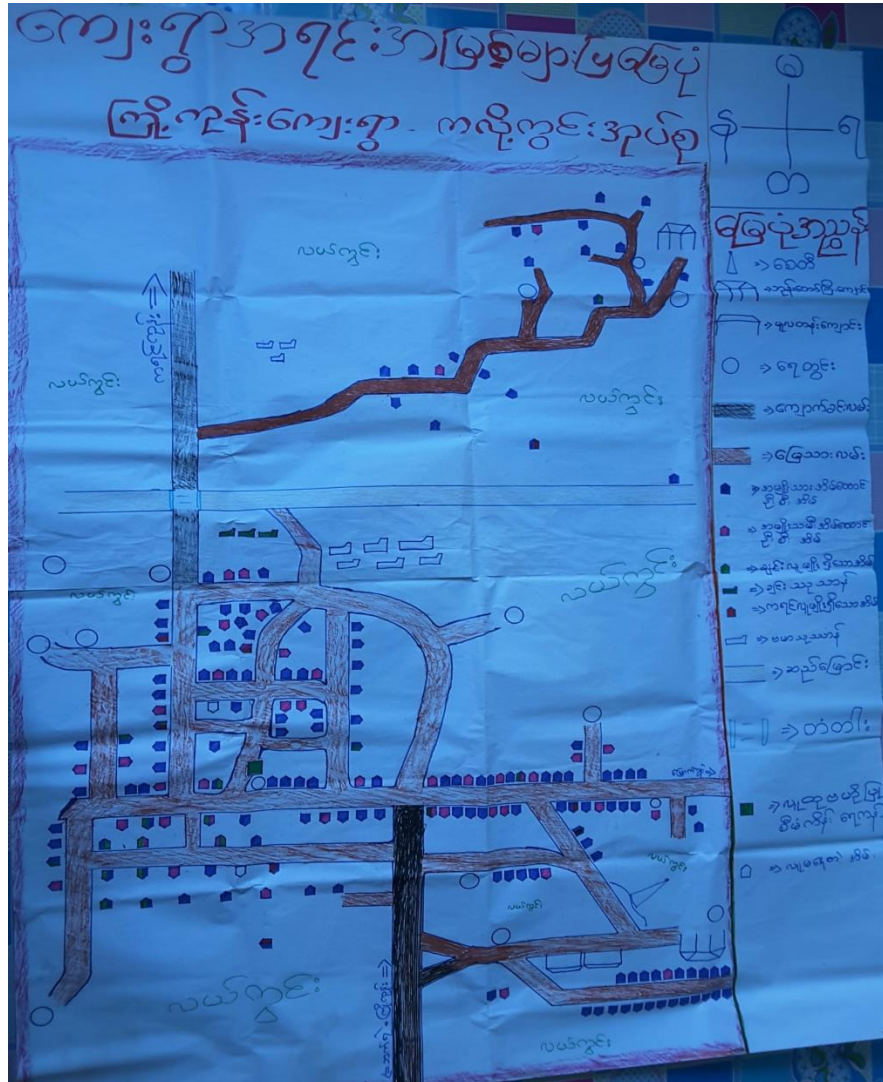 ကျေးရွာအရင်းအမြစ်များပြမြေပုံ
ကြို့ကုန်းကျေးရွာ - ကလို့ကွင်းအုပ်စု
မ
န
ရ
တ
မြေပုံအညွှန်း
⇒ စေတီ
⇒ ဘုန်းတော်ကြီးကျောင်း
⇒ မူလတန်းကျောင်း
⇒ ရေတွင်း
⇒ ကျောက်ခင်းလမ်း
⇒ မြေသားလမ်း
⇒ အမျိုးသားအိမ်ထောင်ဦးစီးအိမ်
⇒ အမျိုးသမီးအိမ်ထောင်ဦးစီးအိမ်
⇒ ချင်းလူမျိုးရှိသောအိမ်
⇒ ချင်းသုသာန်
⇒ ကရင်လူမျိုးရှိသောအိမ်
⇒ ဗမာသုသာန်
⇒ ဆည်မြောင်း
⇒ တံတား
⇒ လူမနေတဲ့အိမ်
လယ်ကွင်း
လယ်ကွင်း
လယ်ကွင်း
လယ်ကွင်း
လယ်ကွင်း
လယ်ကွင်း
လယ်ကွင်း
လယ်ကွင်း
လယ်ကွင်း